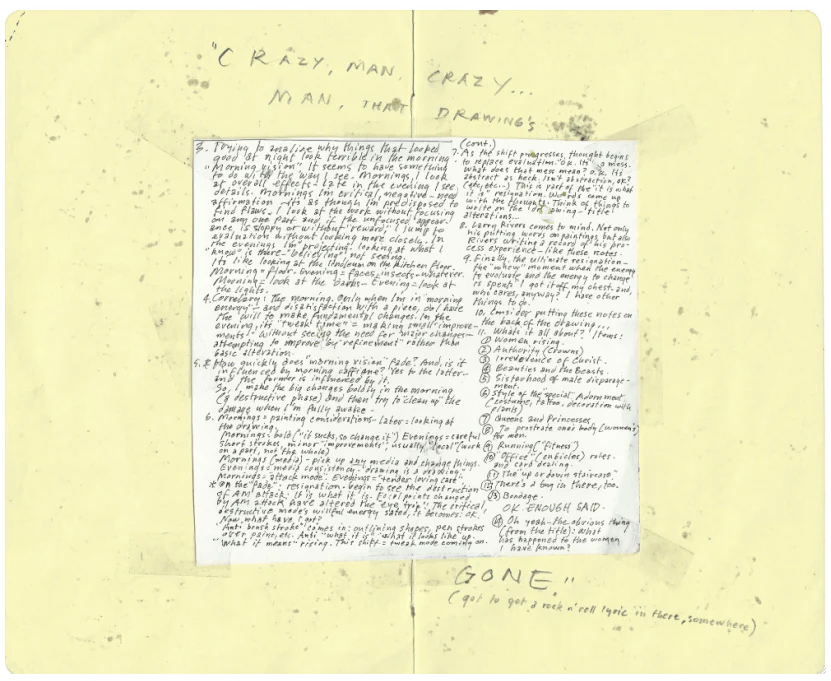 "CRAZY, MAN, CRAZY...
MAN, THAT DRAWING'S
3. Trying to analize why things that looked
good at night look terrible in the morning.
"Morning vision" It seems to have something
to do with the way I see. Mornings, I look
at overall effects - late in the evening I see
details. Mornings I'm critical, negative - need
affirmation - its as though I'm predisposed to
find flaws. I look at the work without focusing
on any one part and if the unfocused appear-
ance is sloppy or without "reward," I jump to
evaluation without looking more closely. In
the evenings I'm "projecting" looking at what I
"know" is there - "believing", not seeing.
Its like looking at the linoleum on the kitchen floor.
Morning = floor. Evening = faces, insects - whatever.
Morning = look at the darks - Evening = look at
the lights.
4. Correlary: The morning. Only when I'm in morning
energy - and disatisfaction with a piece, do I have
the will to make fundamental changes. In the
evening, its "tweak time" = making small "improve-
ments" without seeing the need for major changes -
attempting to improve by "refinement" rather than
basic alteration.
5. * How quickly does "morning vision" fade? And, is it
influenced by morning caffiene? Yes to the latter -
and the former is influenced by it.
So, I make the big changes boldly in the morning
(a destructive phase) and then try to "clean up" the
damage when I'm fully awake.
6. Mornings = painting considerations - Later = looking at
the drawing.
Mornings = bold ("it sucks, so change it") Evenings = careful
short strokes, minor "improvements", usually "local" (work
on a part, not the whole)
Mornings (media) - pick up any media and change things.
Evenings = media consistency - "drawing is a drawing."
Mornings = attack mode: Evenings = "tender loving care"
* on the "fade": resignation - begin to see the destruction
of AM attack: It is what it is. Focal points changed
by AM attack have altered the "eye trip": The critical,
destructive mode's willful energy sated, it becomes: OK
Now, what have I got?
Anti-brush stroke comes in: outlining shapes, pen strokes
over paint, etc. Anti "what it is" - what it looks like up.
"What it means" rising. This shift = tweak mode coming on.
(cont.)
7. As the shift progresses, thought begins
to replace evaluation. O.K. Its a mess.
What does that mess mean? O.K. its
abstract as heck. Isn't abstraction, ok?
(etc, etc...) This is part of the "it is what
it is" resignation. Words come up
with the thoughts. Think of things to
write on the drawing - title
alterations...
8. Larry Rivers comes to mind. Not only
his putting words on paintings but also
Rivers writing a record of his pro-
cess experience - like these notes.
9. Finally, the ultimate resignation -
the "whew" moment when the energy
to evaluate and the energy to change
is spent: I got it off my chest, and,
who cares, anyway? I have other
things to do.
10. Consider putting these notes on
the back of the drawing...
11. What's it all about? Items:
① Women rising.
② Authority (crowns)
③ Irreverence of Christ.
④ Beauties and the Beasts.
⑤ Sisterhood of male disparage-
ment.
⑥ Style of the special Adornment
(costume, tattoo, decoration with
plants)
⑦ Queens and Princesses
⑧ To prostrate ones body (women)
for men.
⑨ Running ("fitness")
⑩ "Office" (cubicles) roles -
and card dealing.
⑪ The "up or down staircase"
⑫ There's a bug in there, too.
⑬ Bondage.
OK ENOUGH SAID.
⑭ Oh yeah - the obvious thing
(from the title): What
has happened to the women
I have known?
GONE."
(got to get a rock n' roll lyric in there, somewhere)